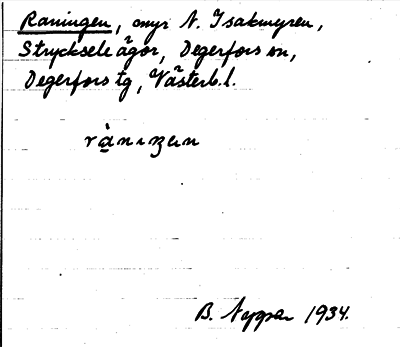 Raningen, myr N. Isakmyren,
Strycksele ägor, Degerfors sn,
Degerfors tg, Västerb.l.
B. 1934.